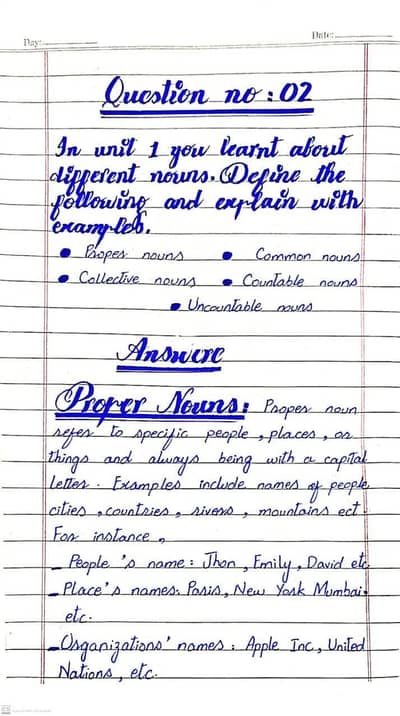 Day:
Date:
Question no : 02
In unit 1 you learnt about
different nouns. Define the
following and explain with
examples.
• Proper nouns • Common nouns
• Collective nouns • Countable nouns
• Uncountable nouns
Answere
Proper Nouns: Proper noun
refer to specific people , places , or
things and always being with a capital
letter . Examples include names of people
cities , countries , rivers , mountains ect.
For instance ,
_ People 's name : Jhon , Emily , David etc
_ Place's names: Paris , New York Mumbai.
etc.
_ Organizations' names : Apple Inc , United
Nations , etc.